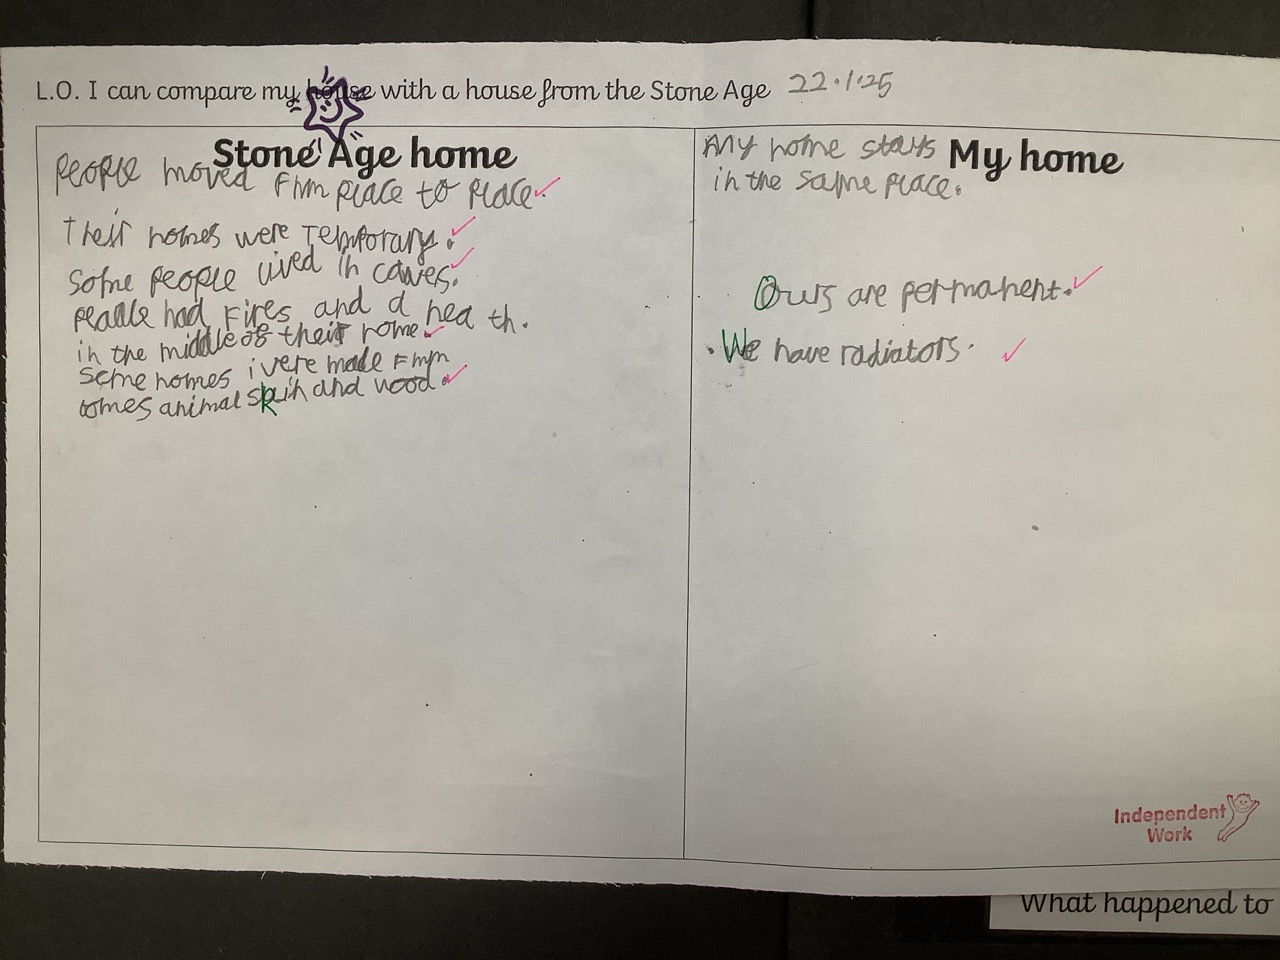 L.O. I can compare my house with a house from the Stone Age 22.1.25
Stone Age home
People moved from place to place
Their homes were Temporary.
Some people lived in caves.
people had Fires and a heath.
in the middle of their home.
Some homes were made From
animal skin and wood.
My home
My home stays
in the same place.
Ours are permanent.
. We have radiators.
Independent
Work
What happened to